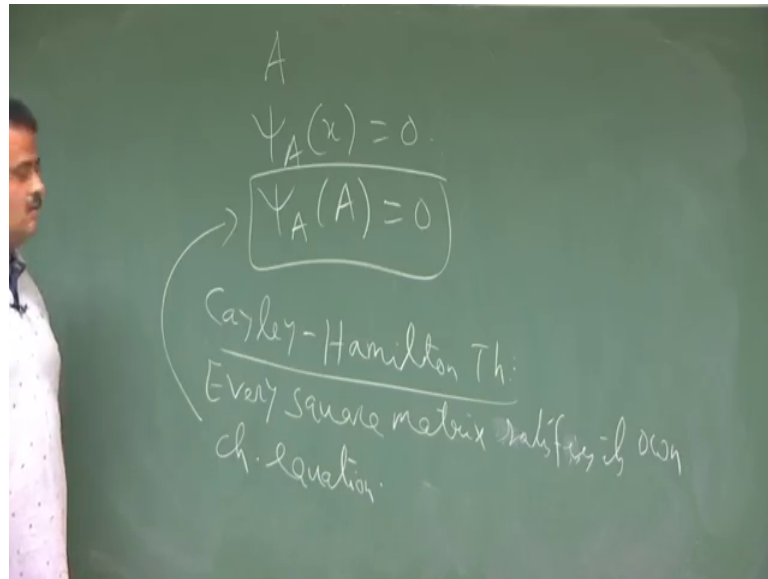 A
Ψ_A(x) = 0.
Ψ_A(A) = 0
Cayley-Hamilton Th:
Every square matrix satisfies its own
ch. equation.